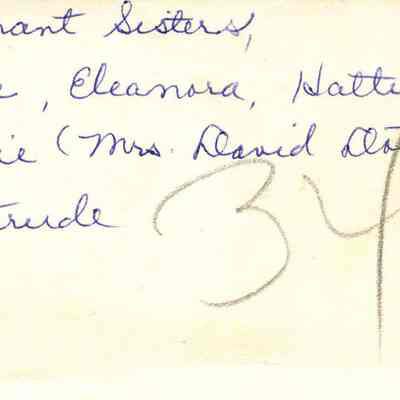 rant Sisters,
e, Eleanora, Hatti
ie (Mrs. David Do
trude
34